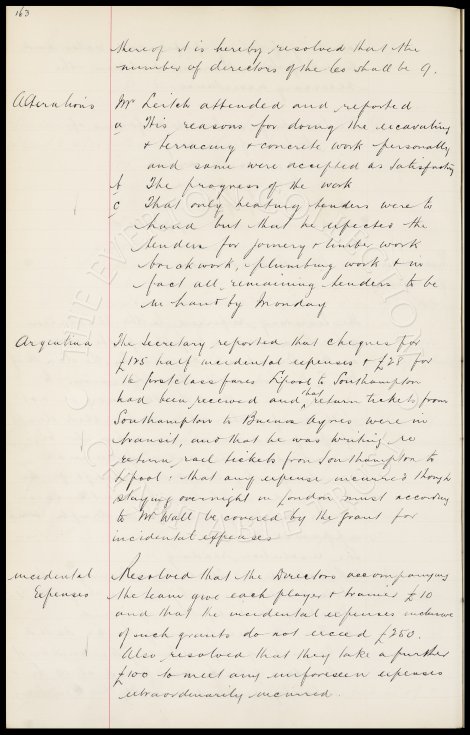 163
thereof it is hereby resolved that the
number of directors of the Co shall be 9.
Alterations
Mr Leitch attended and reported
a His reasons for doing the excavating
& terracing & concrete work personally
and same were accepted as satisfactory
b The progress of the work
c That only heating tenders were to
hand but that he expects the
tenders for joinery & timber work
brickwork, plumbing work & in
fact all remaining tenders to be
in hand by Monday
Argentina
The Secretary reported that cheques for
£125 half incidental expenses & £28 for
16 first class fares L'pool to Southampton
had been received and that return tickets from
Southampton to Buenos Ayres were in
transit, and that he was writing re
return rail tickets from Southampton to
L'pool: that any expense incurred though
staying overnight in London must according
to Mr Wall be covered by the grant for
incidental expenses
incidental
Expenses
Resolved that the Directors accompanying
the team give each player & trainer £10
and that the incidental expenses inclusive
of such grants do not exceed £250.
Also resolved that they take a further
£100 to meet any unforeseen expenses
extraordinarily incurred.